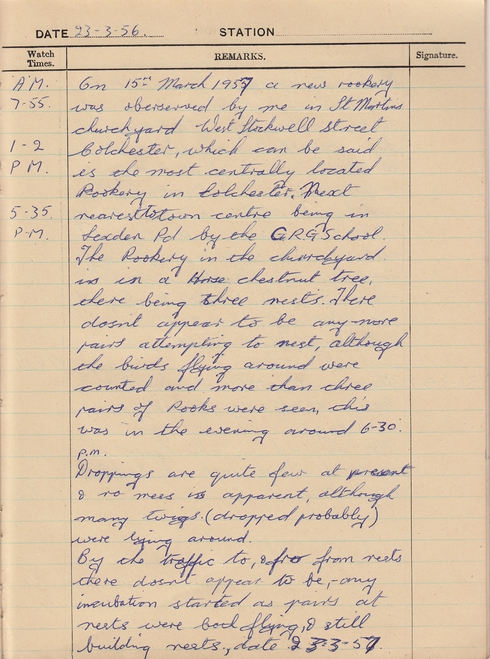 DATE 23-3-56. STATION
Watch Times. REMARKS. Signature.
A.M. On 15th March 1957 a new rookery
7-55. was oberserved by me in St Martins
churchyard West Stockwell Street
1-2 Colchester, which can be said
P.M. is the most centrally located
Rookery in Colchester. Next
5-35 nearest to town centre being in
P.M. Lexden Rd by the G.R.G School.
The Rookery in the churchyard
is in a Horse chestnut tree,
there being three nests. There
doesnt appear to be any more
pairs attempting to nest, although
the birds flying around were
counted and more than three
pairs of Rooks were seen, this
was in the evening around 6-30.
p.m.
Droppings are quite few at present
& no mess is apparent, although
many twigs (dropped probably)
were lying around.
By the traffic to, & fro from nests
there doesnt appear to be, any
incubation started as pairs at
nests were both flying, & still
building nests, date 23-3-57.